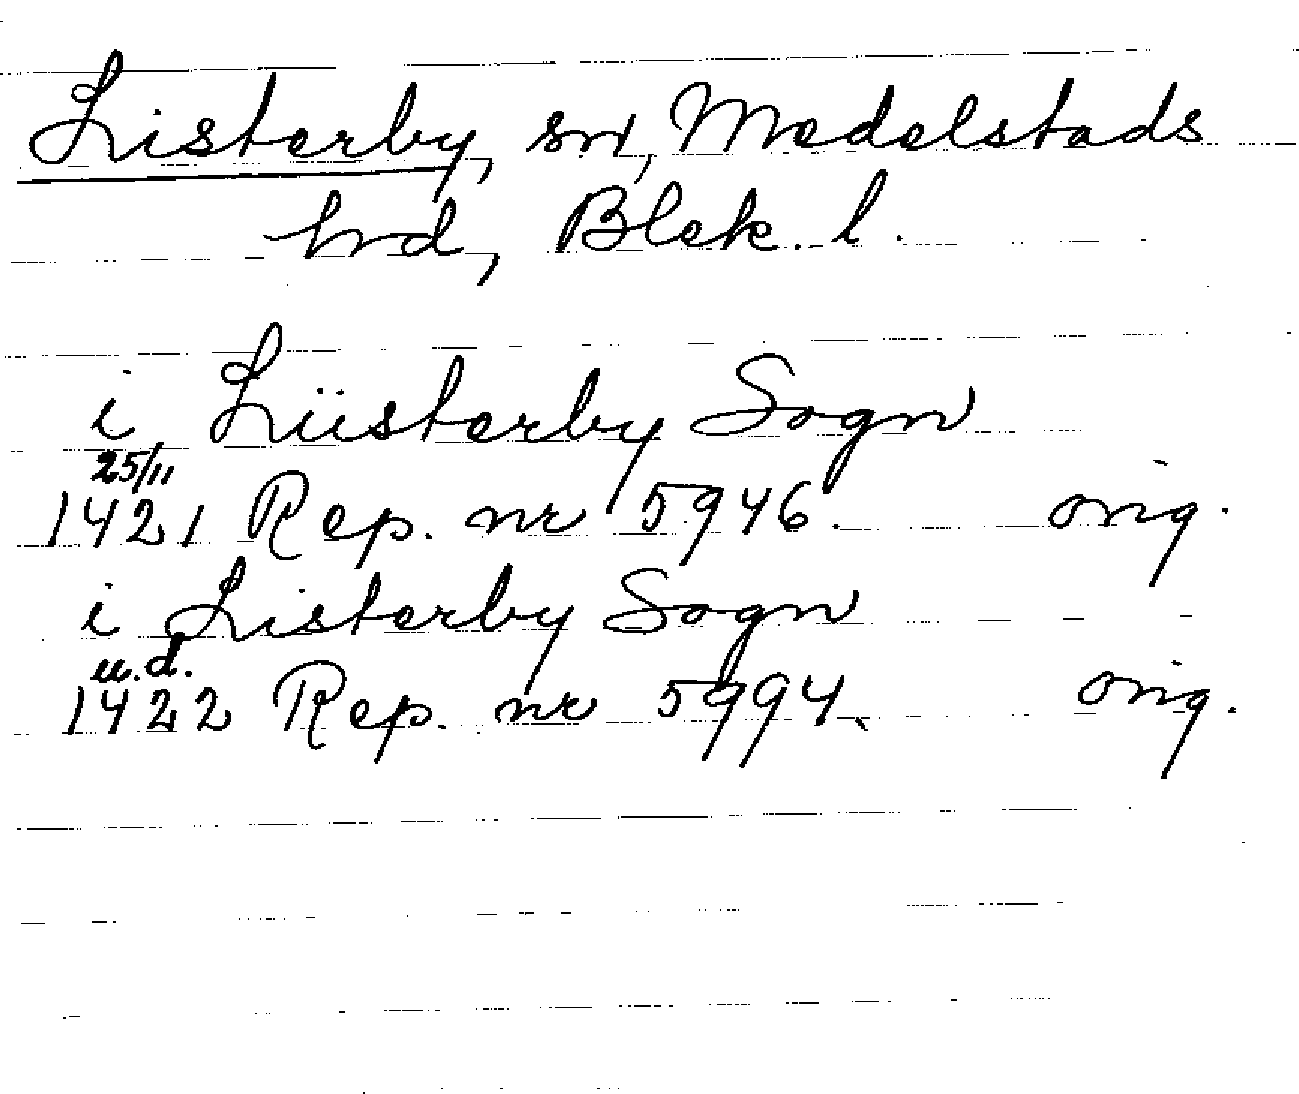 Listerby, sn, Medelstads
hd, Blek. l.
i Liisterby Sogn
25/11
1421 Rep. nr 5946. orig.
i Listerby Sogn
u.d.
1422 Rep. nr 5994. orig.